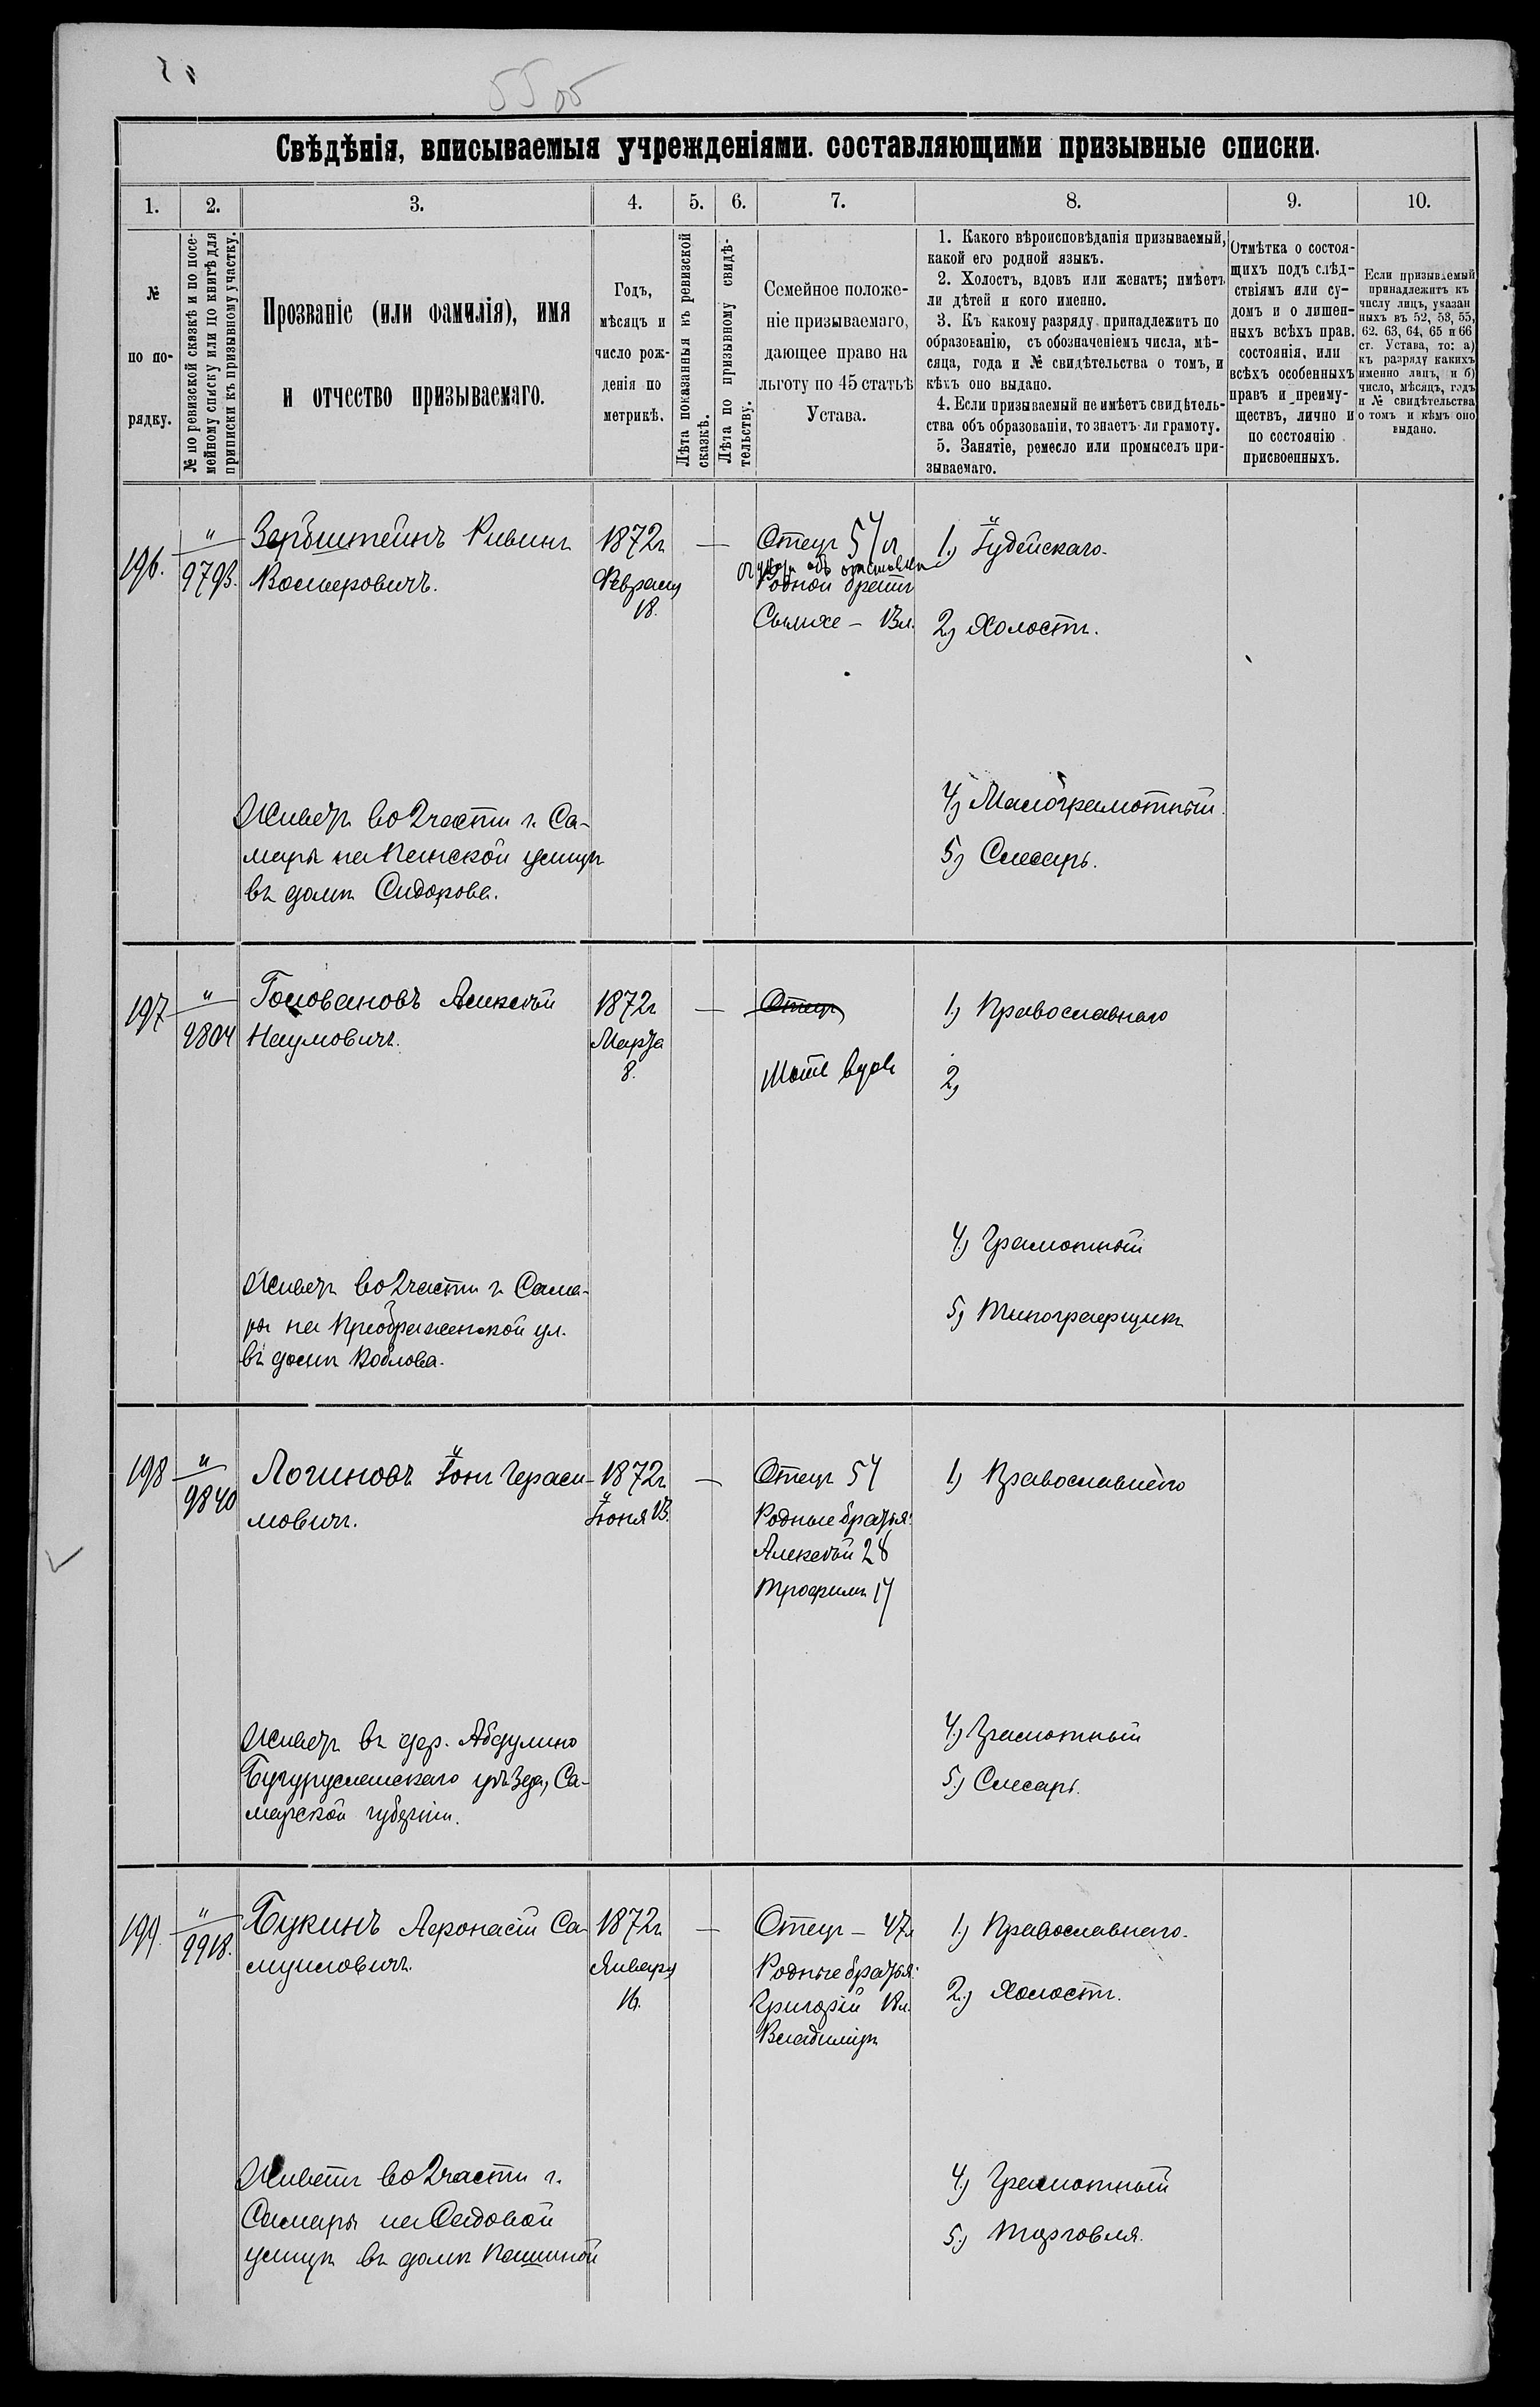 55 об
Свѣдѣнія, вписываемыя учрежденіями. составляющими призывные списки.
1. 2. 3. 4. 5. 6. 7. 8. 9. 10.
№ по порядку.
№ по ревизской сказкѣ и по посе-
мейному списку или по книгѣ для
приписки къ призывному участку.
Прозваніе (или фамилія), имя
и отчество призываемаго.
Годъ,
мѣсяцъ и
число рож-
денія по
метрикѣ.
Лѣта показанныя въ ревизской
сказкѣ.
Лѣта по призывному свидѣ-
тельству.
Семейное положе-
ніе призываемаго,
дающее право на
льготу по 45 статьѣ
Устава.
1. Какого вѣроисповѣданія призываемый,
какой его родной языкъ.
2. Холостъ, вдовъ или женатъ; имѣетъ
ли дѣтей и кого именно.
3. Къ какому разряду принадлежитъ по
образованію, съ обозначеніемъ числа, мѣ-
сяца, года и № свидѣтельства о томъ, и
кѣмъ оно выдано.
4. Если призываемый не имѣетъ свидѣтель-
ства объ образованіи, то знаетъ-ли грамоту.
5. Занятіе, ремесло или промыселъ при-
зываемаго.
Отмѣтка о состоя-
щихъ подъ слѣд-
ствіямъ или су-
домъ и о лишен-
ныхъ всѣхъ прав.
состоянія, или
всѣхъ особенныхъ
правъ и преиму-
ществъ, лично и
по состоянію
присвоенныхъ.
Если призываемый
принадлежитъ къ
числу лицъ, указан
ныхъ въ 52, 53, 55,
62. 63, 64, 65 и 66
ст. Устава, то: а)
къ разряду какихъ
именно лицъ, и б)
число, мѣсяцъ, годъ
и № свидѣтельства
о томъ и кѣмъ оно
выдано.
196.
"
9793.
Ривинъ
1872г
Февраля
18.
—
Отецъ 54 л
Родной братъ
13л.
1.) Іудейскаго.
2) Холостъ.
4) Малограмотный.
5) Слесарь.
Живетъ во 2 части г. Са-
мары на Пенской улицѣ
въ домѣ Сидорова.
197
"
9804
Головановъ Алексѣй
Наумовичъ.
1872г
Марта
8.
—
Отецъ
Мать вдов
1) Православнаго
2)
4) Грамотный
5) Типографщикъ
Живетъ во 2 части г. Сама-
ры на Преображенской ул.
въ домѣ
198
"
9840
Логиновъ Іона Гераси-
мовичъ.
1872г
Іюня 13.
—
Отецъ 54
Родные братья:
Алексѣй 28
Трофимъ 14
1) Православнаго
4) Грамотный
5.) Слесарь.
Живетъ въ дер. Абдулино
Бугурусланскаго уѣзда, Са-
марской губерніи.
199.
"
9918.
Букинъ Афонасій Са-
муиловичъ.
1872г
Января
16.
—
Отецъ – 47л
Родные братья:
Григорій 18л.
Владиміръ
1.) Православнаго.
2.) Холостъ.
4.) Грамотный
5.) Торговля.
Живетъ во 2 части г.
Самары на Садовой
улицѣ въ домѣ Кашиной